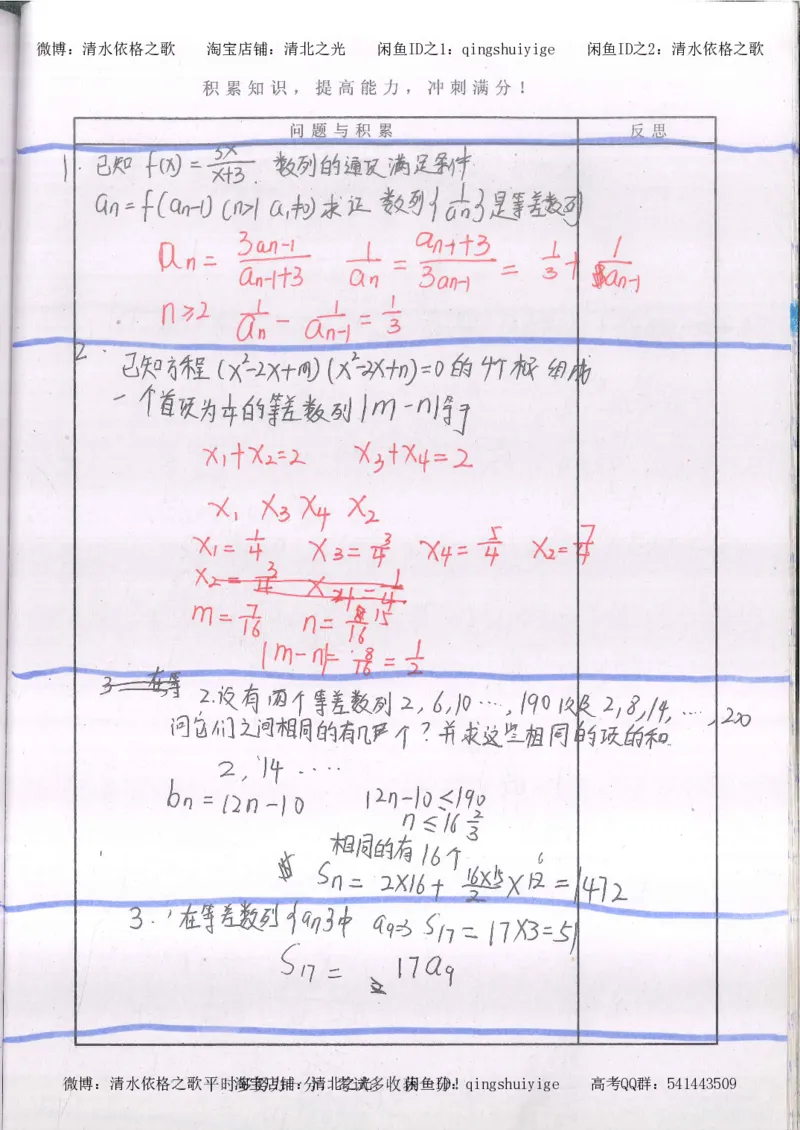 微博：清水依格之歌 淘宝店铺：清北之光 闲鱼ID之1：qingshuiyige 闲鱼ID之2：清水依格之歌
积累知识，提高能力，冲刺满分！
问题与积累 反思
1. 已知 f(x) = 3x/(x+3). 数列的通项满足条件
an = f(an-1) (n>1 a1≠0) 求证 数列{1/an}是等差数列
an = 3an-1/(an-1+3) 1/an = (an-1+3)/3an-1 = 1/3 + 1/an-1
n≥2 1/an - 1/an-1 = 1/3
2. 已知方程(x²-2x+m)(x²-2x+n)=0的4个根组成
一个首项为1/4的等差数列|m-n|等于
x1+x2=2 x3+x4=2
x1 x3 x4 x2
x1=1/4 x3=3/4 x4=5/4 x2=7/4
x2=3/4
m=7/16 n=15/16
|m-n|=8/16=1/2
3 在等
2.设有两个等差数列2,6,10…,190以及2,8,14,…,200
问它们之间相同的有几个？并求这些相同的项的和.
2, 14 ····
bn=12n-10 12n-10≤190
n≤16 2/3
相同的有16个
Sn = 2×16+ 16×15/2 ×12 =1472
3. 在等差数列{an}中 a9=3 S17=17×3=51
S17= 17a9
微博：清水依格之歌 淘宝店铺：清北之光 闲鱼ID：qingshuiyige 高考QQ群：541443509